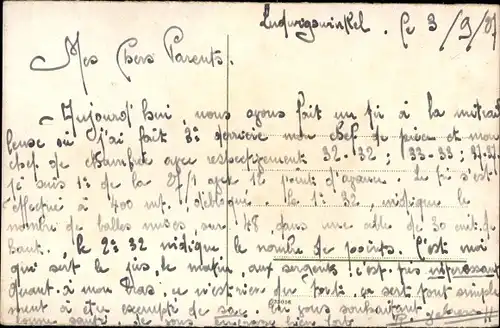 Ludwigswinkel. Ce 3/9/27
Mes Chers Parents.
Aujourd'hui, nous avons fait un tir à la mitrail
leuse où j'ai fait 3e derrière mon chef de pièce et mon
chef de chambre avec respectivement 32-32 ; 33-33 ;
je suis 1e de la avec 12 points d'avance. Le tir s'est
effectué à 400 m, . Le 1e 32, indique le
nombre de balles mises, sur 48 dans une cible de 30 cent de
haut, le 2e 32 indique le nombre de points. C'est moi
qui sert le jus, le matin, aux sergents c'est pas intéressant
Quant à mon bras, ce n'est rien du tout, ça sert tout simple
ment à être exempté de sac. En vous souhaitant
bonne santé, je vous embrasse bien fort.